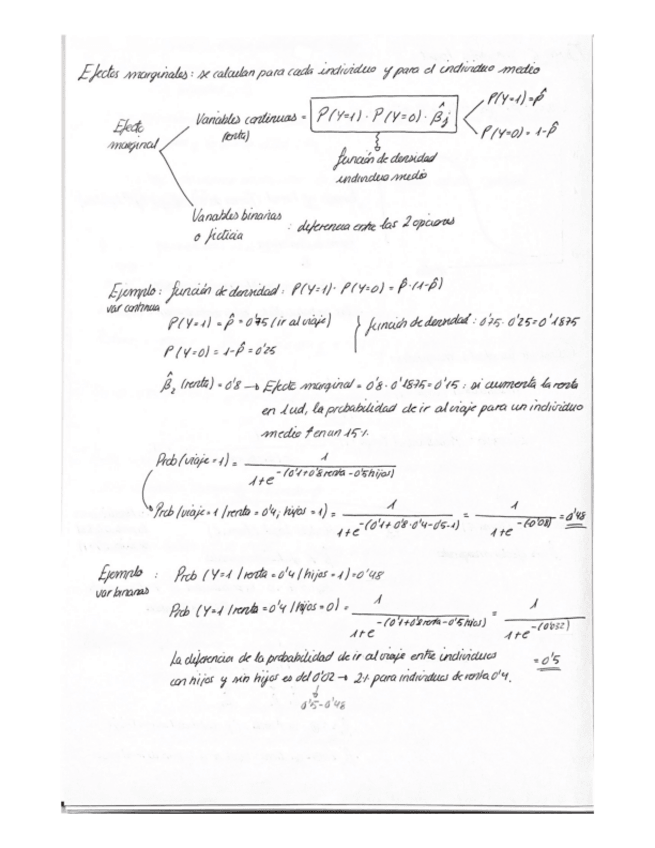 Efectos marginales: se calculan para cada individuo y para el individuo medio
Efecto marginal
Variables continuas = P(Y=1) · P(Y=0) · β̂j
(renta)
P(Y=1)=p̂
P(Y=0)=1-p̂
función de densidad
individuo medio
Variables binarias
o ficticia : diferencia entre las 2 opciones
Ejemplo: función de densidad: P(Y=1)· P(Y=0) = p̂·(1-p̂)
var continua
P(Y=1) = p̂ = 0'75 (ir al viaje)
P(Y=0) = 1-p̂ = 0'25
} función de densidad: 0'75·0'25=0'1875
β̂2 (renta) = 0'8 → Efecto marginal = 0'8·0'1875=0'15 : si aumenta la renta
en 1 ud, la probabilidad de ir al viaje para un individuo
medio ↑ en un 15%.
Prob(viaje=1) = 1 / 1+e^-(0'1+0'8renta-0'5hijos)
Prob(viaje=1 / renta=0'4; hijos=1) = 1 / 1+e^-(0'1+0'8·0'4-0'5·1) = 1 / 1+e^-(-0'08) = 0'48
Ejemplo : Prob (Y=1 / renta=0'4 / hijos=1)=0'48
var binarias
Prob (Y=1 / renta=0'4 / hijos=0) = 1 / 1+e^-(0'1+0'8renta-0'5hijos) = 1 / 1+e^-(0'032) = 0'5
La diferencia de la probabilidad de ir al viaje entre individuos
con hijos y sin hijos es del 0'02 → 2% para individuos de renta 0'4.
0'5-0'48